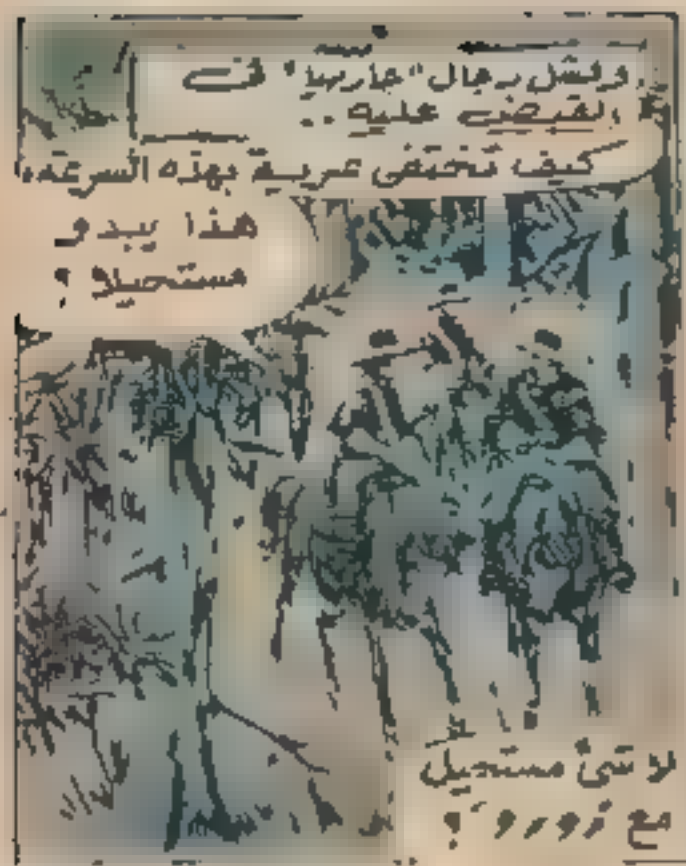 وفشل رجال "جارسيا" فى
القبض عليه ..
كيف تختفى عربة بهذه السرعة،
هذا يبدو
مستحيلا ؟
لا شئ مستحيل
مع زورو ؟